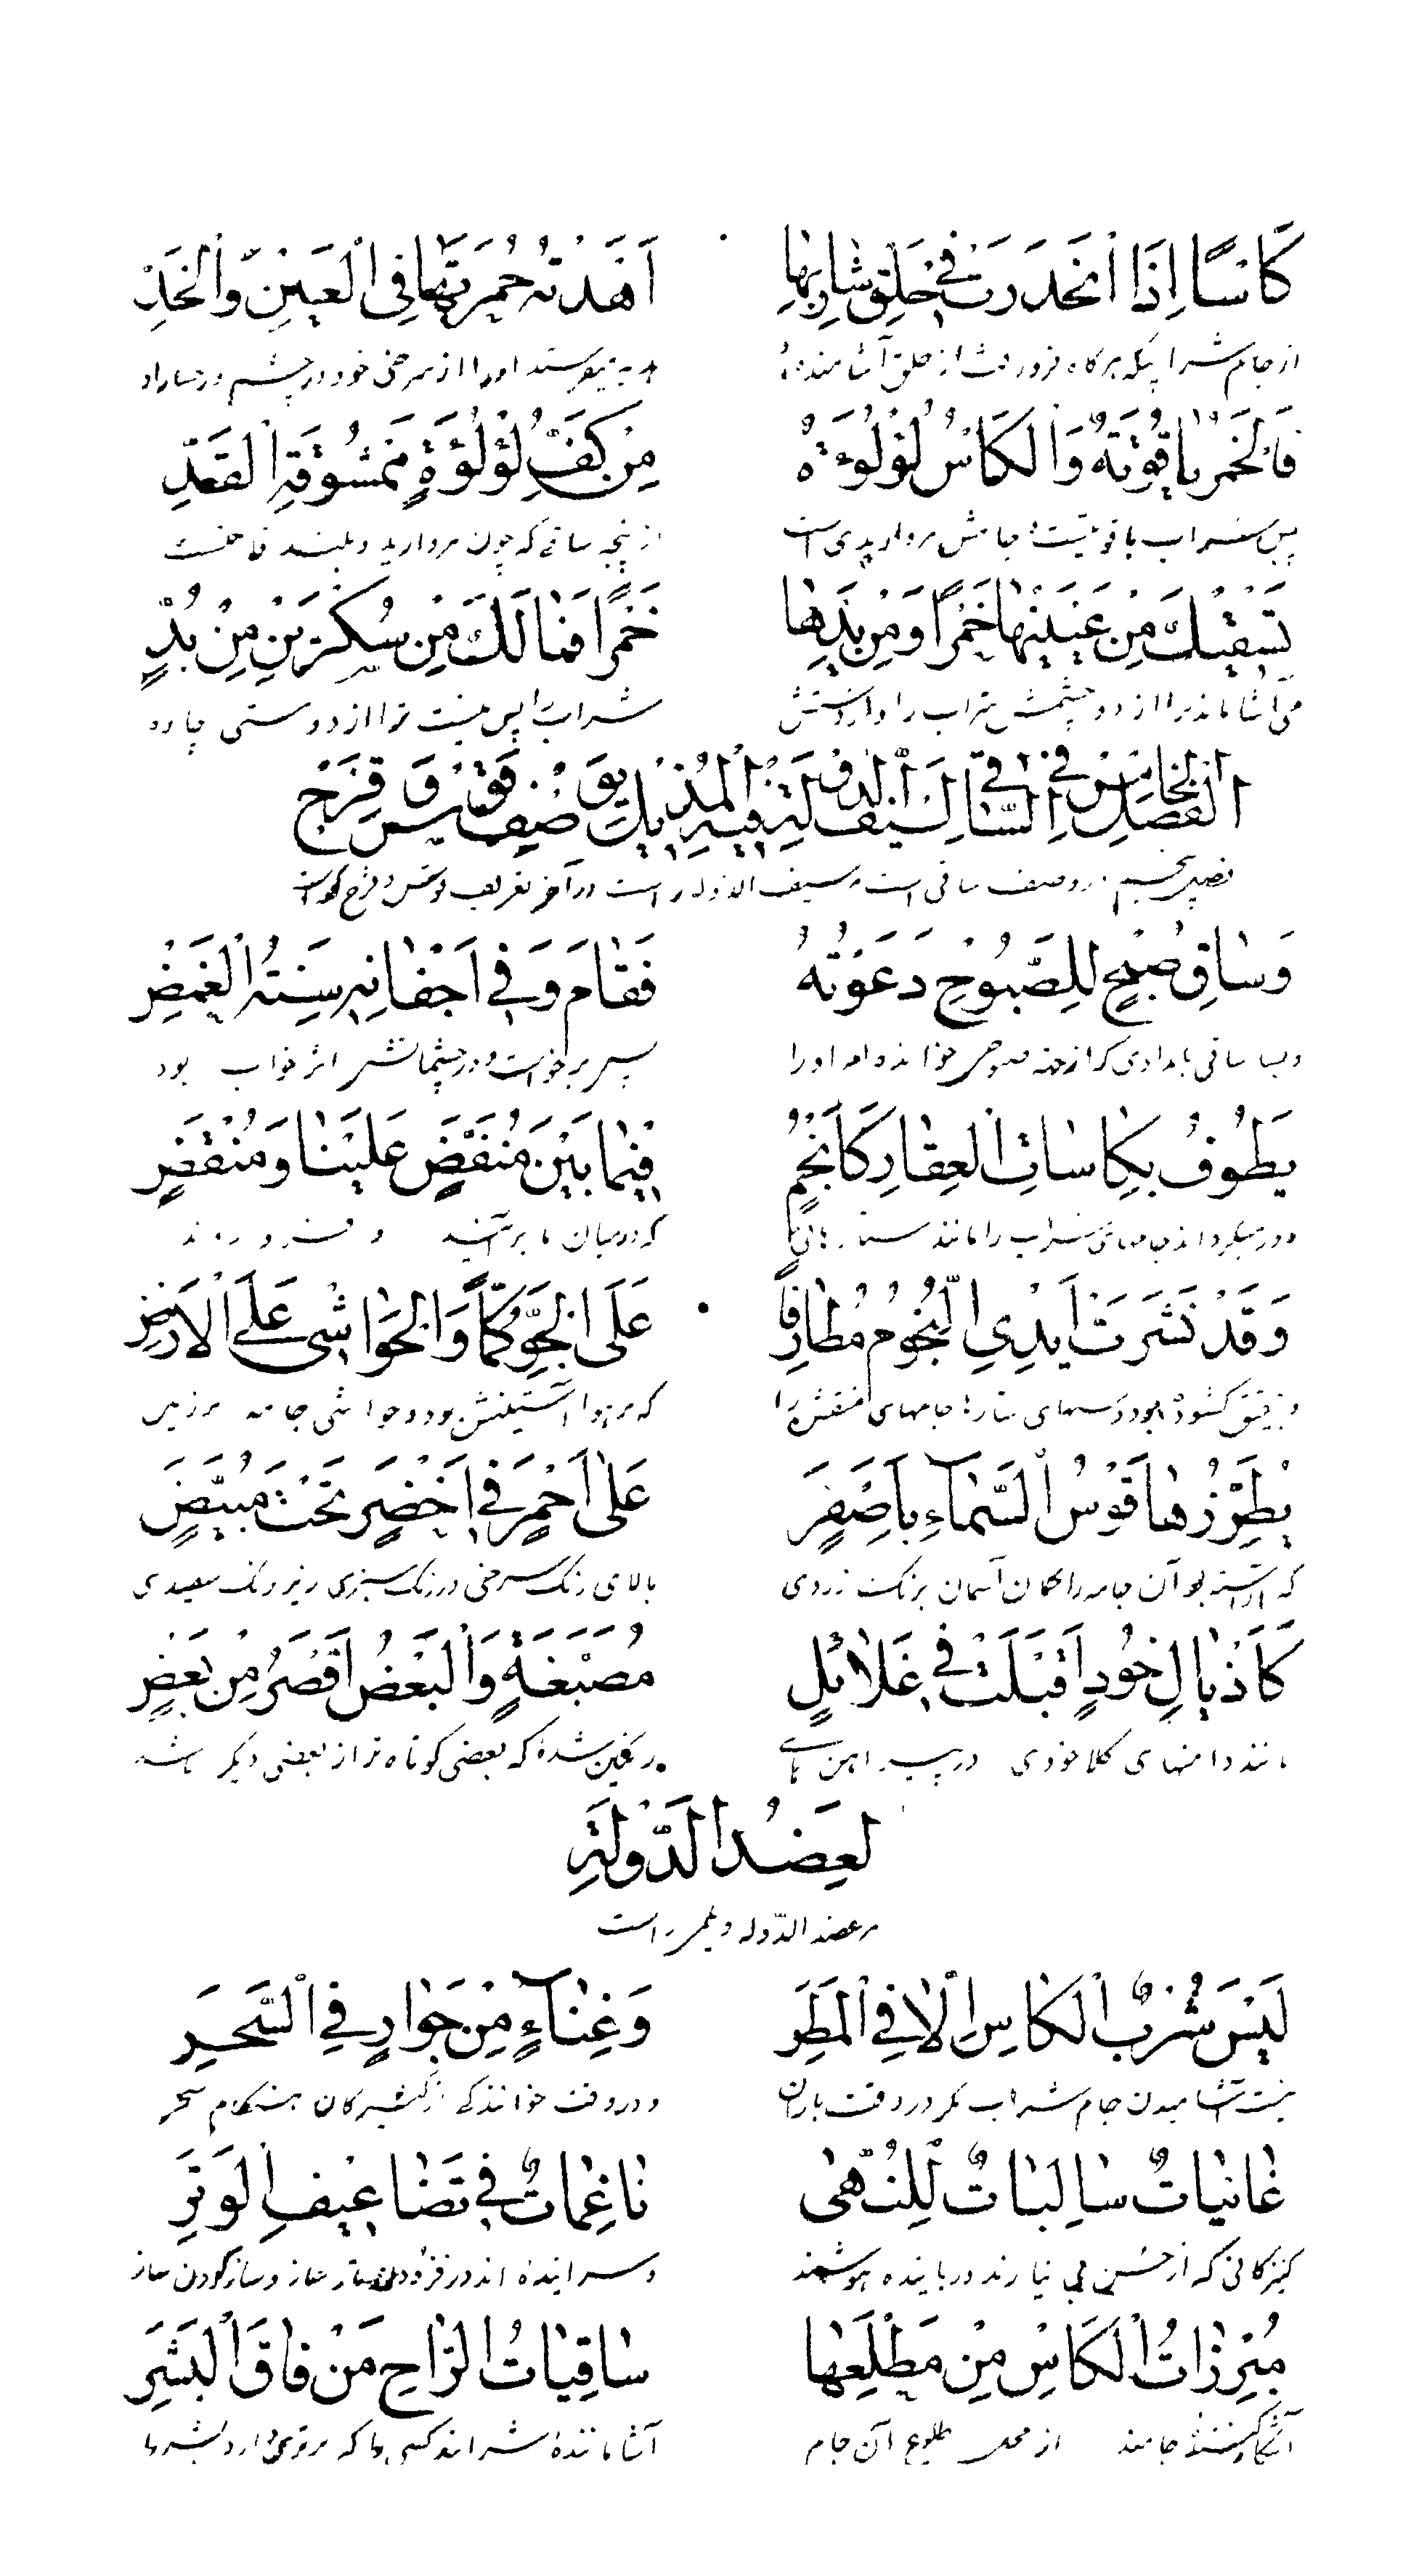 كَاْسًا اِذَا انْحَدَرَتْ فِي حَلْقِ شَارِبِهَا اَهْدَتْهُ حُمْرَتَهَا فِي الْعَيْنِ وَالْخَدِّ
از جام شرابیکه هرگاه فرو رفت از حلق آشامنده هدیه میفرستد او را از سرخی خود در چشم و رخسار او
فَالْخَمْرُ يَاقُوتَةٌ وَالْكَاْسُ لُؤْلُؤَةٌ مِنْ كَفِّ لُؤْلُؤَةٍ مَمْشُوقَةِ الْقَدِّ
پس شراب یاقوتیست و جامش مرواریدی است از پنجه ساقی که چون مروارید و بلند قامتست
تَسْقِيكَ مِنْ عَيْنَيْهَا خَمْرًا وَمِنْ يَدِهَا خَمْرًا فَمَا لَكَ مِنْ سُكْرَيْنِ مِنْ بُدٍّ
می آشاماند ترا از دو چشمش شراب را و از دستش شراب پس نیست ترا از دو مستی چاره
اَلْفَصْلُ الْخَامِسُ فِي السَّاقِي لِسَيْفِ الدَّوْلَةِ فِيهِ الْمُذَيَّلُ بِوَصْفِ قَوْسِ قُزَحَ
فصل پنجم در وصف ساقی است سیف الدوله راست در آخر تعریف قوس و قزح کرده است
وَسَاقٍ صُبْحٍ لِلصَّبُوحِ دَعَوْتُهُ فَقَامَ وَفِي اَجْفَانِهِ سِنَةُ الْغَمْضِ
و بسا ساقی بامدادی که از صبوحی خوانده ام او را پس برخواست و در چشمانش اثر خواب بود
يَطُوفُ بِكَاسَاتِ الْعِقَارِ كَاَنْجُمٍ فِيمَا بَيْنَ مُنْفَضٍّ عَلَيْنَا وَمُنْقَضٍ
که در میان ما برآیند و فرو روند
وَقَدْ نَشَرَتْ اَيْدِي النُّجُومِ مَطَارِفًا عَلَى الْجَوِّ كُمًّا وَالْحَوَاشِي عَلَى الْاَرْضِ
و بتحقیق گشوده بود دستهای ستاره جامهای منقش را که بر هوا آستینش بود و حواشی جامه بر زمین
يُطَرِّزُهَا قَوْسُ السَّمَاءِ بِاَصْفَرَ عَلَى اَحْمَرٍ فِي اَخْضَرٍ تَحْتَ مُبْيَضٍّ
که آراسته بود آن جامه را کمان آسمان برنک زردی بالای رنک سرخی در رنک سبزی زیر رنک سفیدی
كَاَذْيَالِ خُودٍ اَقْبَلَتْ فِي غَلَائِلٍ مُصَبَّغَةٍ وَالْبَعْضُ اَقْصَرُ مِنْ بَعْضٍ
مانند دامنهای در پیراهن های رنگین شده که بعضی کوتاه تر از بعضی دیگر باشد
لِعَضُدِ الدَّوْلَةِ
مر عضد الدوله دیلم راست
لَيْسَ شُرْبُ الْكَاسِ اِلَّا فِي الْمَطَرِ وَغِنَاءٍ مِنْ جَوَارٍ فِي السَّحَرِ
نیست آشامیدن جام شراب مگر در وقت باران و در وقت خوانندگی از کنیزکان هنگام سحر
غَانِيَاتٌ سَالِبَاتٌ لِلنُّهَى نَاغِمَاتٌ فِي تَضَاعِيفِ الْوَتَرِ
کنیزکانی که از حسن بی نیازند و رباینده هوشمند و سراینده اند در
مُبْرِزَاتُ الْكَاْسِ مِنْ مَطْلَعِهَا سَاقِيَاتُ الرَّاحِ مَنْ فَاقَ الْبَشَرَ
آشکارکننده جامند از محل طلوع آن جام آشاماننده شراب اند کسی را که برتری دارد بشر را